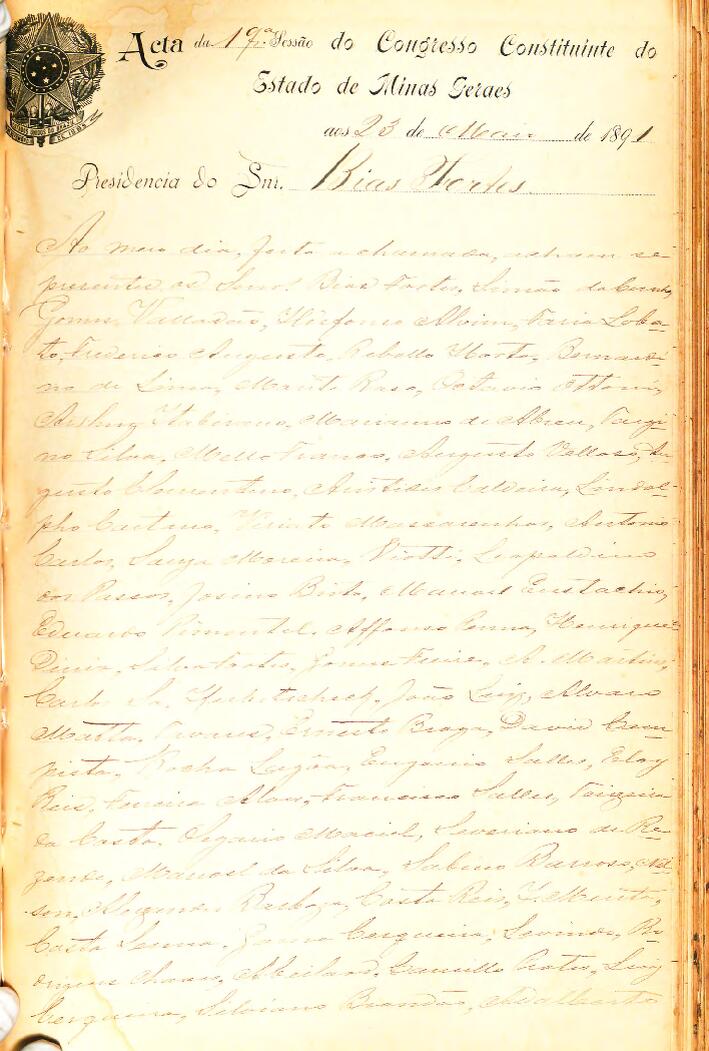 Acta da 19ª Sessão do Congresso Constituinte do
Estado de Minas Geraes
aos 23 de Maio de 1891
Presidencia do Snr. Bias Fortes
Ao meio dia, feita a chamada, acham se
presentes os Snrs. Bias Fortes, Simão da Cunha,
Gomes Valladão, Ildefonso Alvim, Faria Loba-
to, Frederico Augusto, Rebello Horta, Bernardi-
no de Lima, Octavio Ottoni,
Itabirano, Marianno de Abreu, Targi-
no Silva, Mello Franco, Augusto Velloso, Au-
gusto Clementino, Aristides Caldeira, Lindol-
pho Caetano, Viriato Mascarenhas, Antonio
Carlos, Moreira, Viotti, Leopoldino
dos Passos, Josino Brito, Manoel Eustachio,
Eduardo Pimentel, Affonso Penna, Henrique
Diniz, Silva Fortes, Gomes Freire, A. Martins,
Carlos Sá, Kubitschek, João Luiz, Alvaro
Matta, Tavares, Ernesto Braga, David Cam-
pista, Rocha Lagôa, Eugenio Salles, Eloy
Reis, Ferreira Alves, Francisco Salles, Teixeira
da Costa, Olegario Maciel, Severiano de Re-
zende, Manoel da Silva, Sabino Barroso, Nel-
son, Barboza, Costa Reis,
Costa Senna, Gama Cerqueira, Levindo, Ro-
drigues Chaves, Abeilard, Camillo Prates, Luiz
Cerqueira, Silviano Brandão, Adalberto